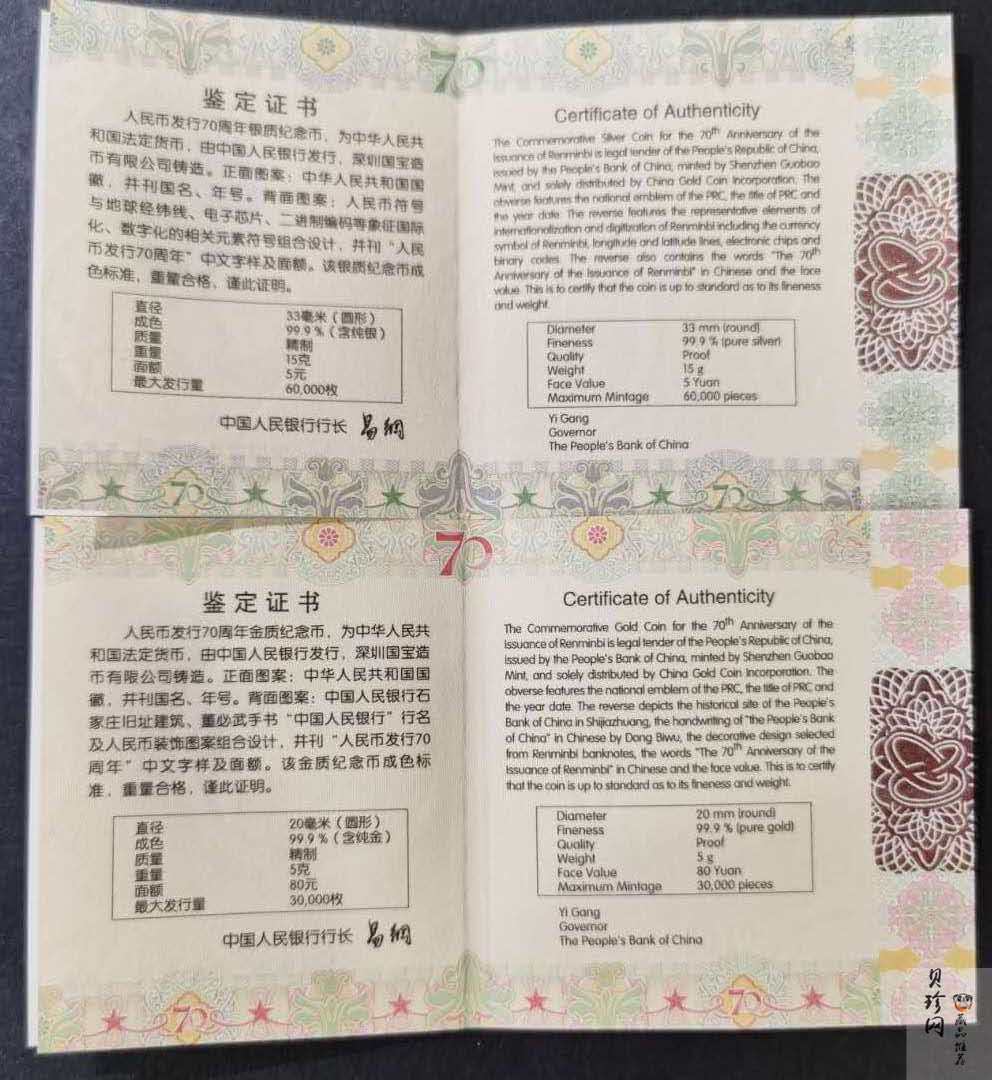 70
鉴定证书
人民币发行70周年银质纪念币，为中华人民共
和国法定货币，由中国人民银行发行，深圳国宝造
币有限公司铸造。正面图案：中华人民共和国国
徽，并刊国名、年号。背面图案：人民币符号
与地球经纬线、电子芯片、二进制编码等象征国际
化、数字化的相关元素符号组合设计，并刊“人民
币发行70周年”中文字样及面额。该银质纪念币成
色标准，重量合格，谨此证明。
直径 33毫米（圆形）
成色 99.9%（含纯银）
质量 精制
重量 15克
面额 5元
最大发行量 60,000枚
中国人民银行行长 易纲
Certificate of Authenticity
The Commemorative Silver Coin for the 70th Anniversary of the
Issuance of Renminbi is legal tender of the People's Republic of China,
issued by the People's Bank of China, minted by Shenzhen Guobao
Mint, and solely distributed by China Gold Coin Incorporation. The
obverse features the national emblem of the PRC, the title of PRC and
the year date. The reverse features the representative elements of
internationalization and digitization of Renminbi including the currency
symbol of Renminbi, longitude and latitude lines, electronic chips and
binary codes. The reverse also contains the words "The 70th
Anniversary of the Issuance of Renminbi" in Chinese and the face
value. This is to certify that the coin is up to standard as to its fineness
and weight.
Diameter 33 mm (round)
Fineness 99.9 % (pure silver)
Quality Proof
Weight 15 g
Face Value 5 Yuan
Maximum Mintage 60,000 pieces
Yi Gang
Governor
The People's Bank of China
70 70
70
鉴定证书
人民币发行70周年金质纪念币，为中华人民共
和国法定货币，由中国人民银行发行，深圳国宝造
币有限公司铸造。正面图案：中华人民共和国国
徽，并刊国名、年号。背面图案：中国人民银行石
家庄旧址建筑、董必武手书“中国人民银行”行名
及人民币装饰图案组合设计，并刊“人民币发行70
周年”中文字样及面额。该金质纪念币成色标
准，重量合格，谨此证明。
直径 20毫米（圆形）
成色 99.9%（含纯金）
质量 精制
重量 5克
面额 80元
最大发行量 30,000枚
中国人民银行行长 易纲
Certificate of Authenticity
The Commemorative Gold Coin for the 70th Anniversary of the
Issuance of Renminbi is legal tender of the People's Republic of China,
issued by the People's Bank of China, minted by Shenzhen Guobao
Mint, and solely distributed by China Gold Coin Incorporation. The
obverse features the national emblem of the PRC, the title of PRC and
the year date. The reverse depicts the historical site of the People's
Bank of China in Shijiazhuang, the handwriting of "the People's Bank
of China" in Chinese by Dong Biwu, the decorative design selected
from Renminbi banknotes, the words "The 70th Anniversary of the
Issuance of Renminbi" in Chinese and the face value. This is to certify
that the coin is up to standard as to its fineness and weight.
Diameter 20 mm (round)
Fineness 99.9 % (pure gold)
Quality Proof
Weight 5 g
Face Value 80 Yuan
Maximum Mintage 30,000 pieces
Yi Gang
Governor
The People's Bank of China
70 70
贝珍网
藏品推荐